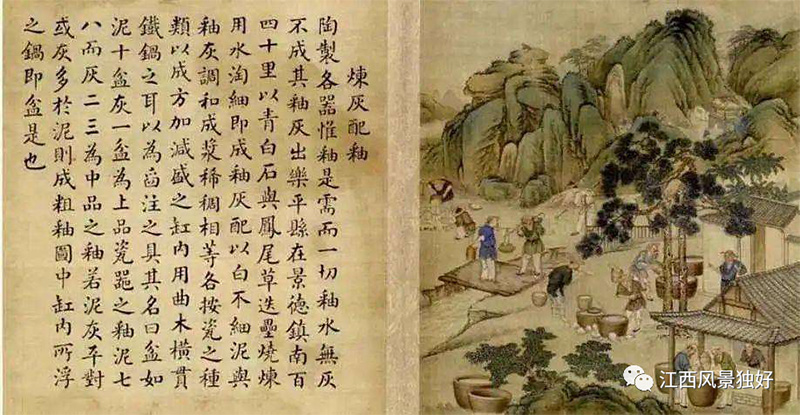 煉灰配釉
陶製各器惟釉是需而一切釉水無灰
不成其釉灰出樂平縣在景德鎮南百
四十里以青白石與鳳尾草迭壘燒煉
用水淘細即成釉灰配以白不細泥與
釉灰調和成漿稀稠相等各按瓷之種
類以成方加減盛之缸內用曲木橫貫
鐵鍋之耳以為舀注之具其名曰盆如
泥十盆灰一盆為上品瓷器之釉泥七
八而灰二三為中品之釉若泥灰平對
或灰多於泥則成粗釉圖中缸內所浮
之鍋即盆是也
江西风景独好